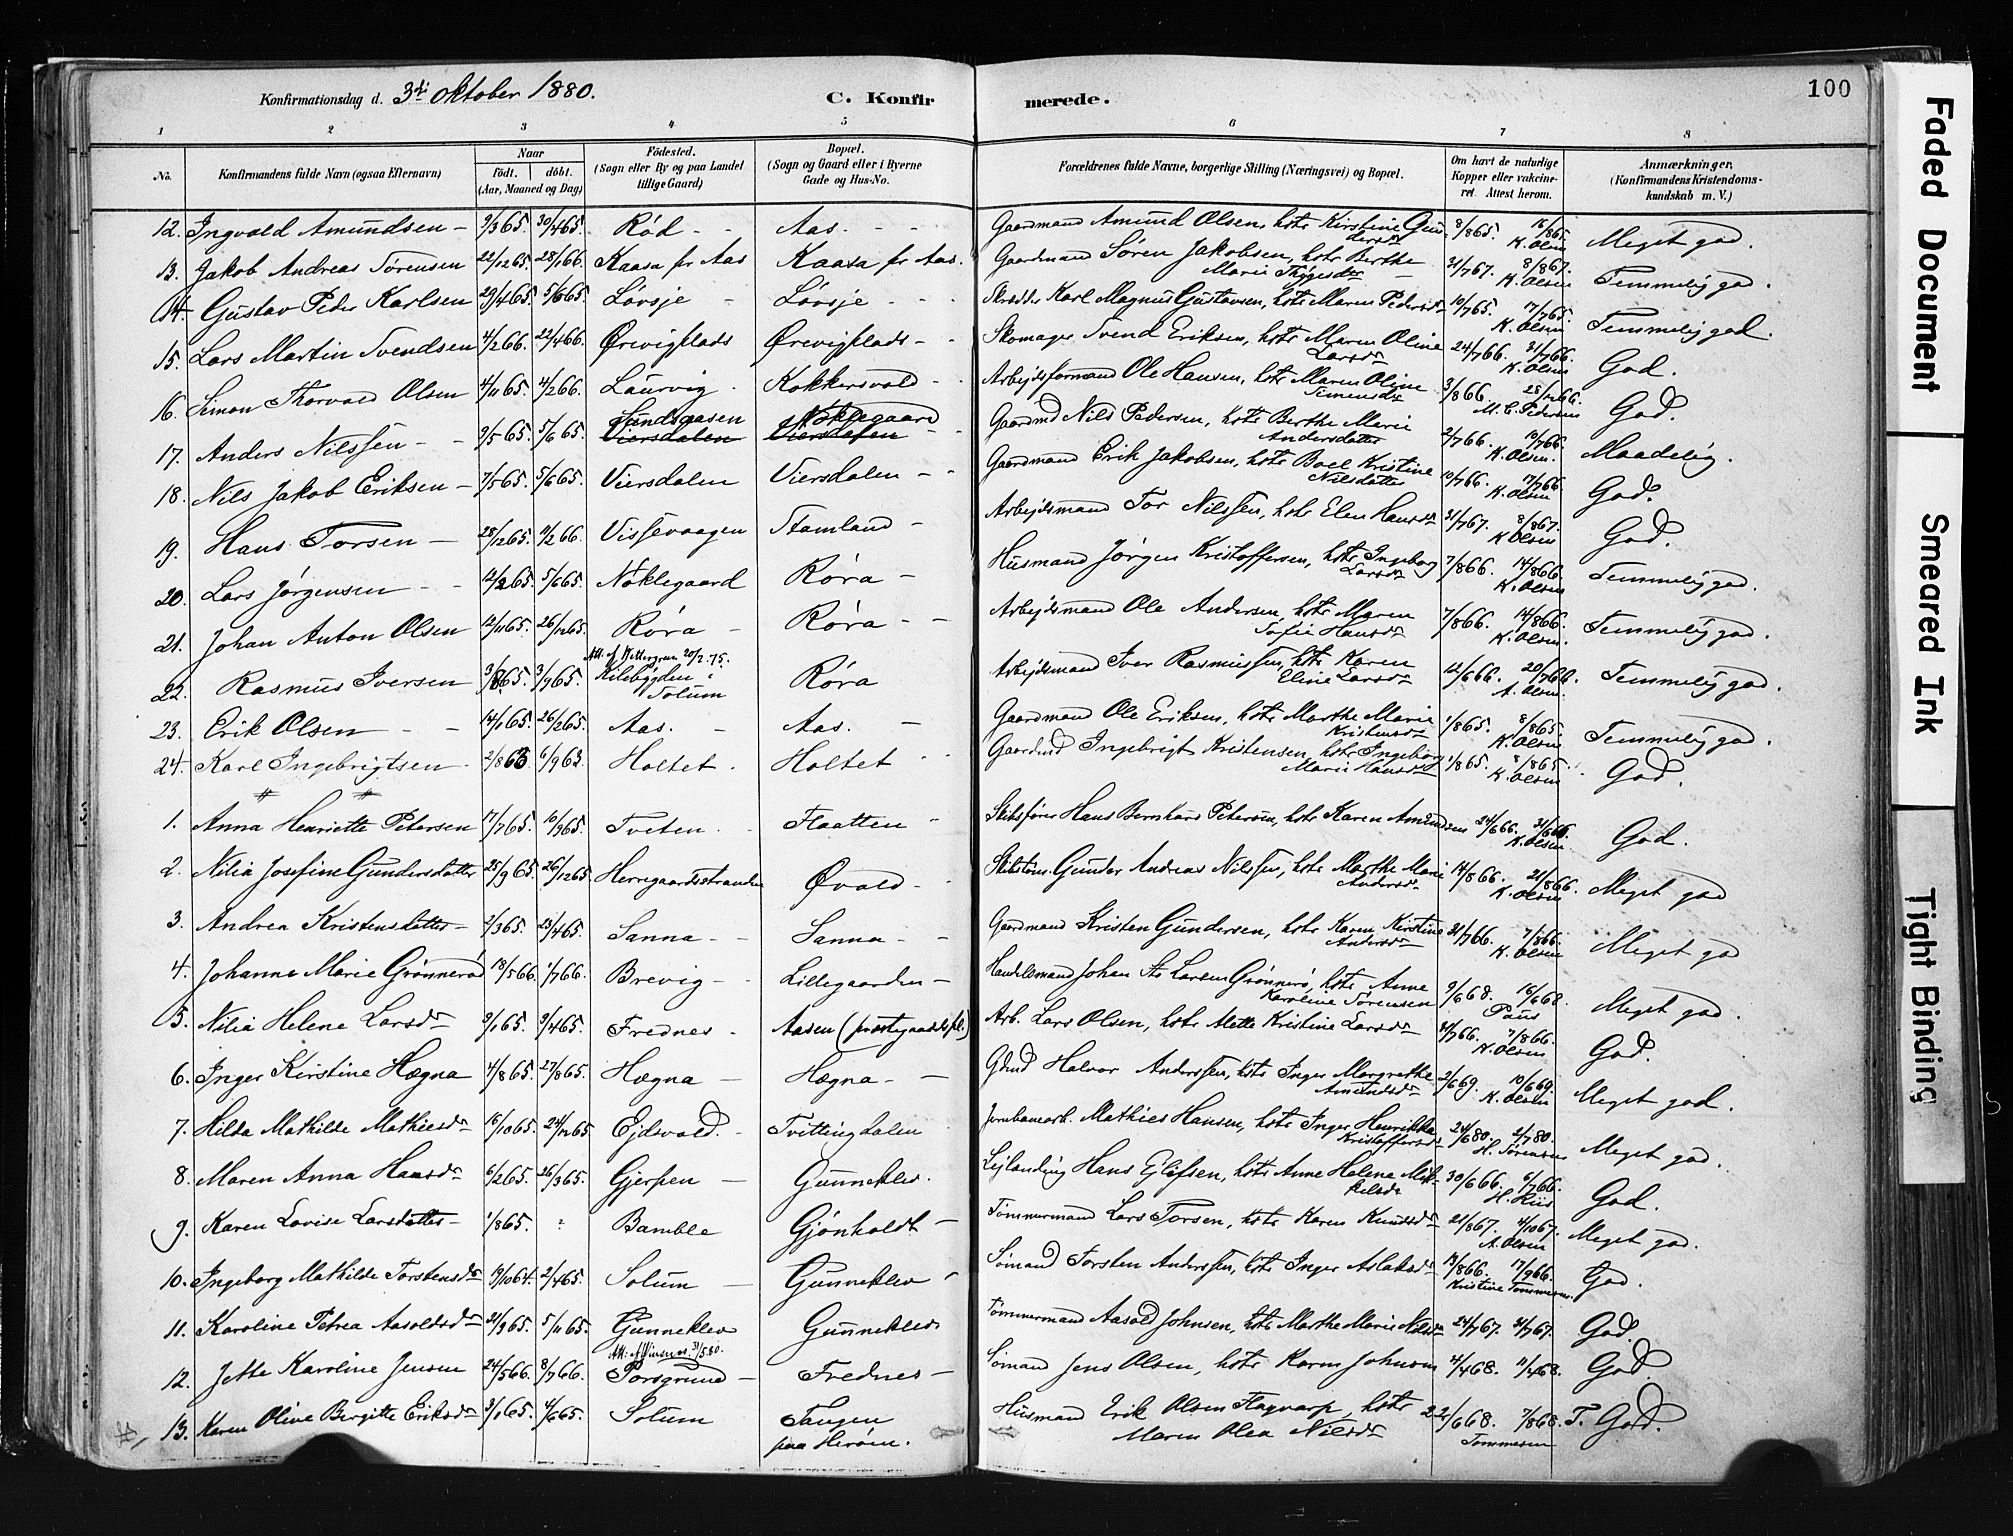 Konfirmationsdag d. 3di Oktober 1880. C. Konfirmerede. 100
1 2 3 4 5 6 7 8
No. Konfirmandens fulde Navn (ogsaa Efternavn) Naar Født. døbt. (Aar, Maaned og Dag) Fødested. (Sogn eller By og paa Landet tillige Gaard) Bopæl. (Sogn og Gaard eller i Byerne Gade og Hus-No. Forældrenes fulde Navne, borgerlige Stilling (Næringsvei) og Bopæl. Om havt de naturlige Kopper eller vakcineret. Attest herom. Anmærkninger. (Konfirmandens Kristendomskundskab m. V.)
12. Ingvald Amundsen 9/3 65. 30/4 65. Rød Aas. Gaardmand Amund Olsen, hstr Kirstine Gundersdr 8/8 65. K. Olsen Meget god.
13. Jakob Andreas Sørensen 22/12 65. 28/1 66. Kaasa fr Aas Kaasa fr Aas. Gaardmand Søren Jakobsen, hstr Berthe Marie Thygesdr 31/7 67. 8/8 67. K. Olsen Temmelig god.
14. Gustav Peder Karlsen 29/4 65. 5/6 65. Løvsje Løvsje Skrædder Karl Magnus Gustavsen, hstr Maren Pedersdr 10/7 65. 17/7 65. K. Olsen Temmelig god.
15. Lars Martin Svendsen 4/2 66. 22/4 66. Ørevigplads Ørevigplads Skomager Svend Eriksen, hstr Maren Oline Larsdr 24/7 66. 31/7 66. K. Olsen God.
16. Simon Thorvald Olsen 4/11 65. 4/2 66. Laurvig Kokkersvold Arbejdsformand Ole Hansen, hstr Maren Oline Simensdr 3/8 66. 28/12 66. M. C. Pedersen God.
17. Anders Nilssen 9/5 65. 5/6 65. Sundsaasen Viersdalen Nøklegaard Viersdalen Gaardmd Nils Pedersen, hstr Berthe Marie Andersdatter 2/7 66. 10/7 66. K. Olsen. Maadelig.
18. Nils Jakob Eriksen 7/5 65. 5/6 65. Viersdalen Viersdalen Gaardmand Erik Jakobsen, hstr Boel Kristine Nilsdatter 10/7 66. 17/7 66. K. Olsen God.
19. Hans Torsen 28/12 65. 11/2 66. Vissevaagen Stamland Arbejdsmand Tor Nilssen, hstr Elen Hansdr 31/7 67. 8/8 67. K. Olsen God.
20. Lars Jørgensen 12/2 65. 5/6 65. Nøklegaard Røra Husmand Jørgen Kristoffersen, hstr Ingeborg Larsdr 7/8 66. 14/8 66. K. Olsen Temmelig god.
21. Johan Anton Olsen 12/11 65. 26/12 65. Røra Røra Arbejdsmand Ole Andersen, hstr Maren Sofie Hansdr 7/8 66. 14/8 66. K. Olsen. Temmelig god.
22. Rasmus Iversen 3/8 65. 3/9 65. Kilebygden i Solum Røra Arbejdsmand Iver Rasmussen, hstr Karen Eline Larsdr 12/6 66. 20/7 66. Temmelig god.
23. Erik Olsen 14/1 65. 26/2 65. Aas. Aas. Gaardmand Ole Eriksen, hstr Marthe Marie Kristensdr 1/8 65. 8/8 65. K. Olsen Temmelig god.
24. Karl Ingebrigtsen 2/8 63 6/9 63. Holtet. Holtet Gaardmd Ingebrigt Kristensen, hstr Ingeborg Marie Hansdr 1/8 65. 8/8 65. K. Olsen God.
1. Anna Henriette Petersen 17/7 65. 10/9 65. Tveten Flaatten Skibsfører Hans Bernhard Petersen, hstr Karen Amundsen 24/6 66. K. Olsen God.
2. Nilia Josefine Gundersdatter 25/9 65. 26/12 65 Herregaardsstranden Øvald Skibstøm. Gunder Andreas Nilssen, hstr Marthe Marie Andersdr 14/8 66. 21/8 66. K. Olsen Meget god
3. Andrea Kristensdatter 2/3 65. 23/4 65. Sanna Sanna Gaardmand Kristen Gundersen, hstr Karen Kirstine Andersdr 31/7 66. 7/8 66. K. Olsen Meget god
4. Johanne Marie Grønnerød 18/5 66. 1/7 66. Brevig Lillegaarden Handelsmand Johan Larsen Grønnerø, hstr Anne Karoline Sørensen 9/6 68. 16/6 68. Paus Meget god.
5. Nilia Helene Larsdr 9/1 65. 9/4 65. Frednes Aasen (præstegaardspl) Arb. Lars Olsen, hstr Mette Kristine Larsdr 31/7 66. 7/8 66. K. Olsen God.
6. Inger Kirstine Hægna 4/8 65. 27/8 65. Hægna Hægna Gdmd Halvor Anderssen, hstr Inger Margrethe Amundsdr 2/6 69. 10/6 69. K. Olsen Meget god.
7. Hilda Mathilde Mathiesdr 16/10 65. 24/12 65 Ejdsvold. Tvittingdalen Jernbanearb. Mathies Hansen, hstr Inger Henrikka Kristoffersdr 24/6 80. 2/7 80. H. Sørensen Meget god.
8. Maren Anna Hansdr 6/2 65. 26/3 65. Gjerpen Gunneklev. Lejlænding Hans Ellefsen, hstr Anne Helene Mikkelsdr 30/6 66. 6/7 66. H. Riis God.
9. Karen Lovise Larsdatter 1/8 65. Bamble Gjønholdt Tømmermand Lars Torsen, hstr Karen Knudsdr 21/8 67. 4/10 67. Meget god.
10. Ingeborg Mathilde Torstensdr 19/10 64. 2/4 65. Solum Gunneklev Sømand Torsten Anderssen, hstr Inger Aslaksdr 13/8 66. 17/9 66. Kristine Tommesen. God.
11. Karoline Petrea Aasoldsdr 21/9 65. 5/11 65. Gunneklev Gunneklev Tømmermand Aasold Johnsen, hstr Marthe Marie Nilsdr 24/7 67. 31/7 67. God
12. Jette Karoline Jensen 24/5 66. 8/7 66. Porsgrund Frednes Sømand Jens Olsen, hstr Karen Johnsen 4/4 68. 11/4 68. God.
13. Karen Oline Bergitte Eriksdr 3/1 65. 4/6 65. Solum Tangen paa Herøen. Husmand Erik Olsen Flagvarp, hstr Maren Olea Nilsdr 22/6 68. 7/8 68. Tommesen T. God.
Faded Document Smeared Ink Tight Binding